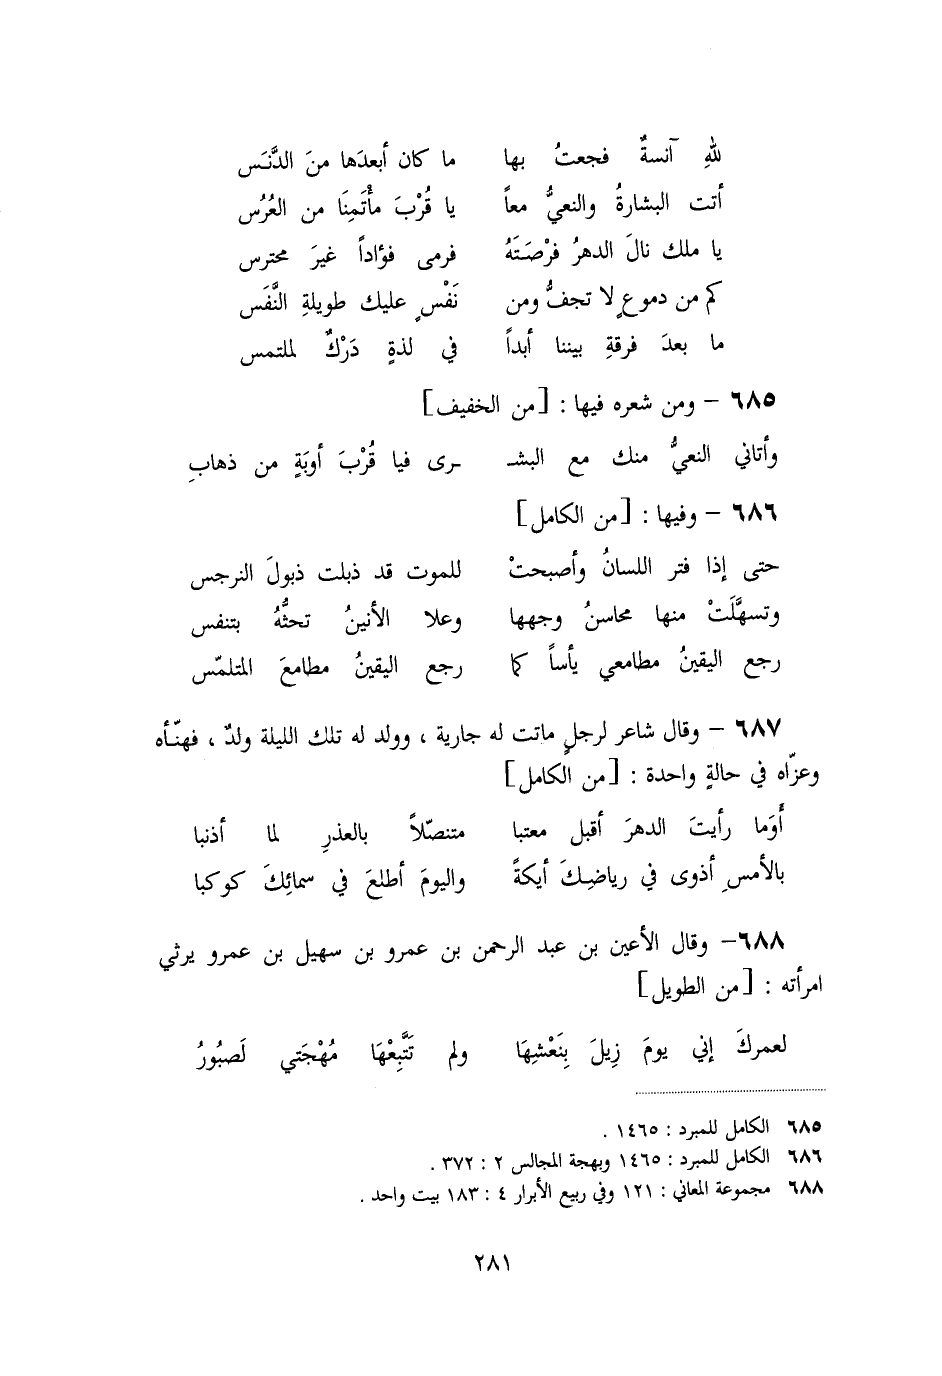 للهِ آنسةٌ فجعتُ بها ما كان أبعدَها منَ الدَّنَس
أتت البشارةُ والنعيُّ معاً يا قُرْبَ مأْتَمِنَا من العُرُس
يا ملك نالَ الدهرُ فرْصَتَهُ فرمى فؤاداً غيرَ محترس
كم من دموعٍ لا تجفُّ ومن نَفْسٍ عليك طويلةِ النَّفَس
ما بعدَ فرقةِ بيننا أبداً في لذةٍ دَرْكٌ لملتمس
٦٨٥ – ومن شعره فيها : [من الخفيف]
وأتاني النعيُّ منك مع البشـ ـرى فيا قُرْبَ أوبَةٍ من ذهابِ
٦٨٦ – وفيها : [من الكامل]
حتى إذا فتر اللسانُ وأصبحتْ للموت قد ذبلت ذبولَ النرجس
وتسهَّلَتْ منها محاسنُ وجهها وعلا الأنينُ تحثُّهُ بتنفس
رجع اليقينُ مطامعي يأساً كما رجع اليقينُ مطامعَ المتلمّس
٦٨٧ – وقال شاعر لرجلٍ ماتت له جارية ، وولد له تلك الليلة ولدٌ ، فهنّأه
وعزّاه في حالةٍ واحدة : [من الكامل]
أَوَما رأيتَ الدهرَ أقبل معتبا متنصّلاً بالعذرِ لما أذنبا
بالأمسِ أذوى في رياضِكَ أيكةً واليومَ أطلعَ في سمائِكَ كوكبا
٦٨٨– وقال الأعين بن عبد الرحمن بن عمرو بن سهيل بن عمرو يرثي
امرأته : [من الطويل]
لعمركَ إني يومَ زِيلَ بِنَعْشِهَا ولم تَتَّبِعْهَا مُهْجَتي لَصبُورُ
٦٨٥ الكامل للمبرد : ١٤٦٥ .
٦٨٦ الكامل للمبرد : ١٤٦٥ وبهجة المجالس ٢ : ٣٧٢ .
٦٨٨ مجموعة المعاني : ١٢١ وفي ربيع الأبرار ٤ : ١٨٣ بيت واحد .
٢٨١